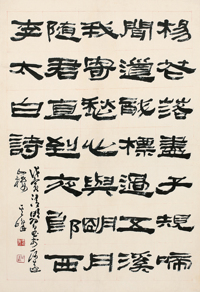 楊花落盡子規啼
聞道龍標過五溪
我寄愁心與明月
隨君直到夜郎西
李太白詩